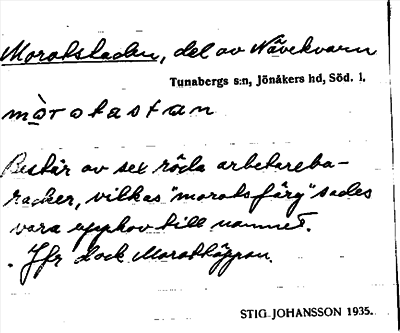 Morotstaden, del av Nävekvarn
Tunabergs s:n, Jönåkers hd, Söd. l.
mòrotastan
Består av sex röda arbetareba-
racker, vilkas "morotsfärg" sades
vara upphov till namnet.
. Jfr dock Morottäppan.
STIG JOHANSSON 1935.